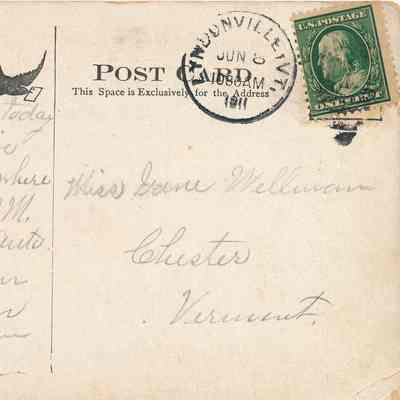 LYNDONVILLE, VT.
JUN 8
1030AM
1911
U.S. POSTAGE
ONE CENT
POST CARD
This Space is Exclusively for the Address
Today
where
M.
Auto
Miss Jane Wellman
Chester
Vermont.